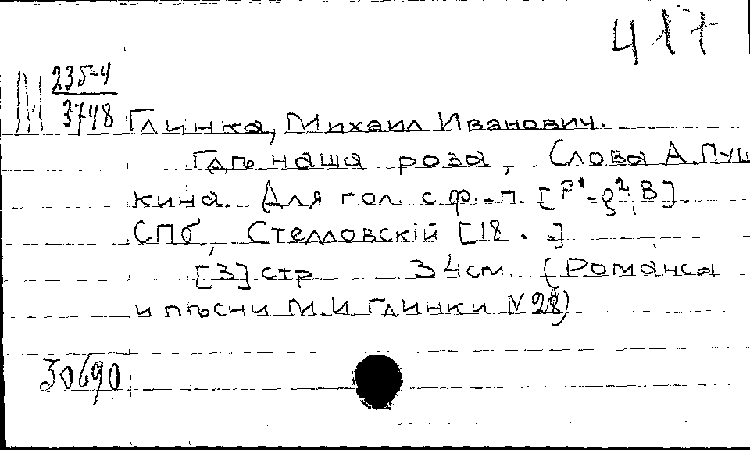 417
М 235-4
3748
Глинка, Михаил Иванович.
Гдѣ наша роза, Слова А. Пуш
кина. Для гол. с ф.-п. [F¹-g², B].
СПб, Стелловскій [18 . .]
[3] стр 34 см (Романсы
и пѣсни М. И Глинки № 28)
30690